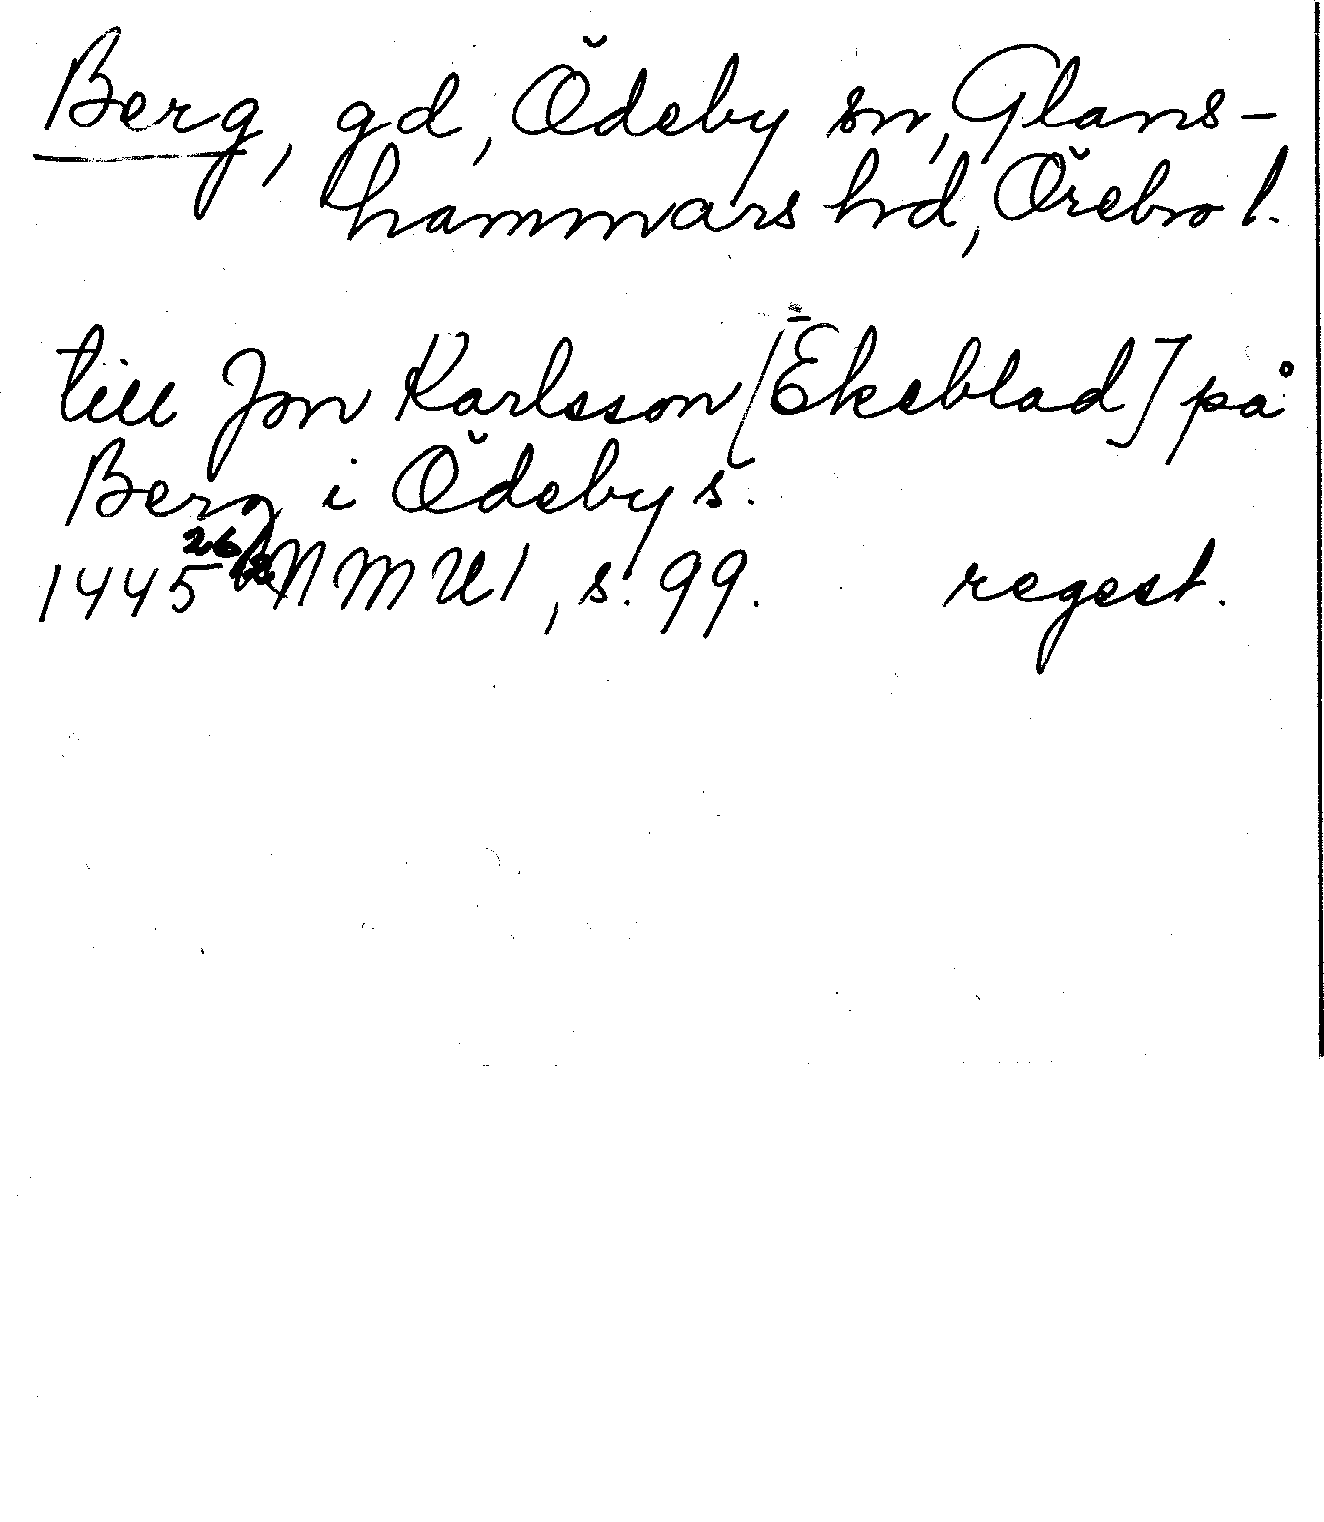 Berg, gd, Ödeby sn, Glans-
hammars hd, Örebro l.
till Jon Karlsson [Ekeblad] på
Berg i Ödeby s.
1445 26/2 NMU 1, s. 99. regest.